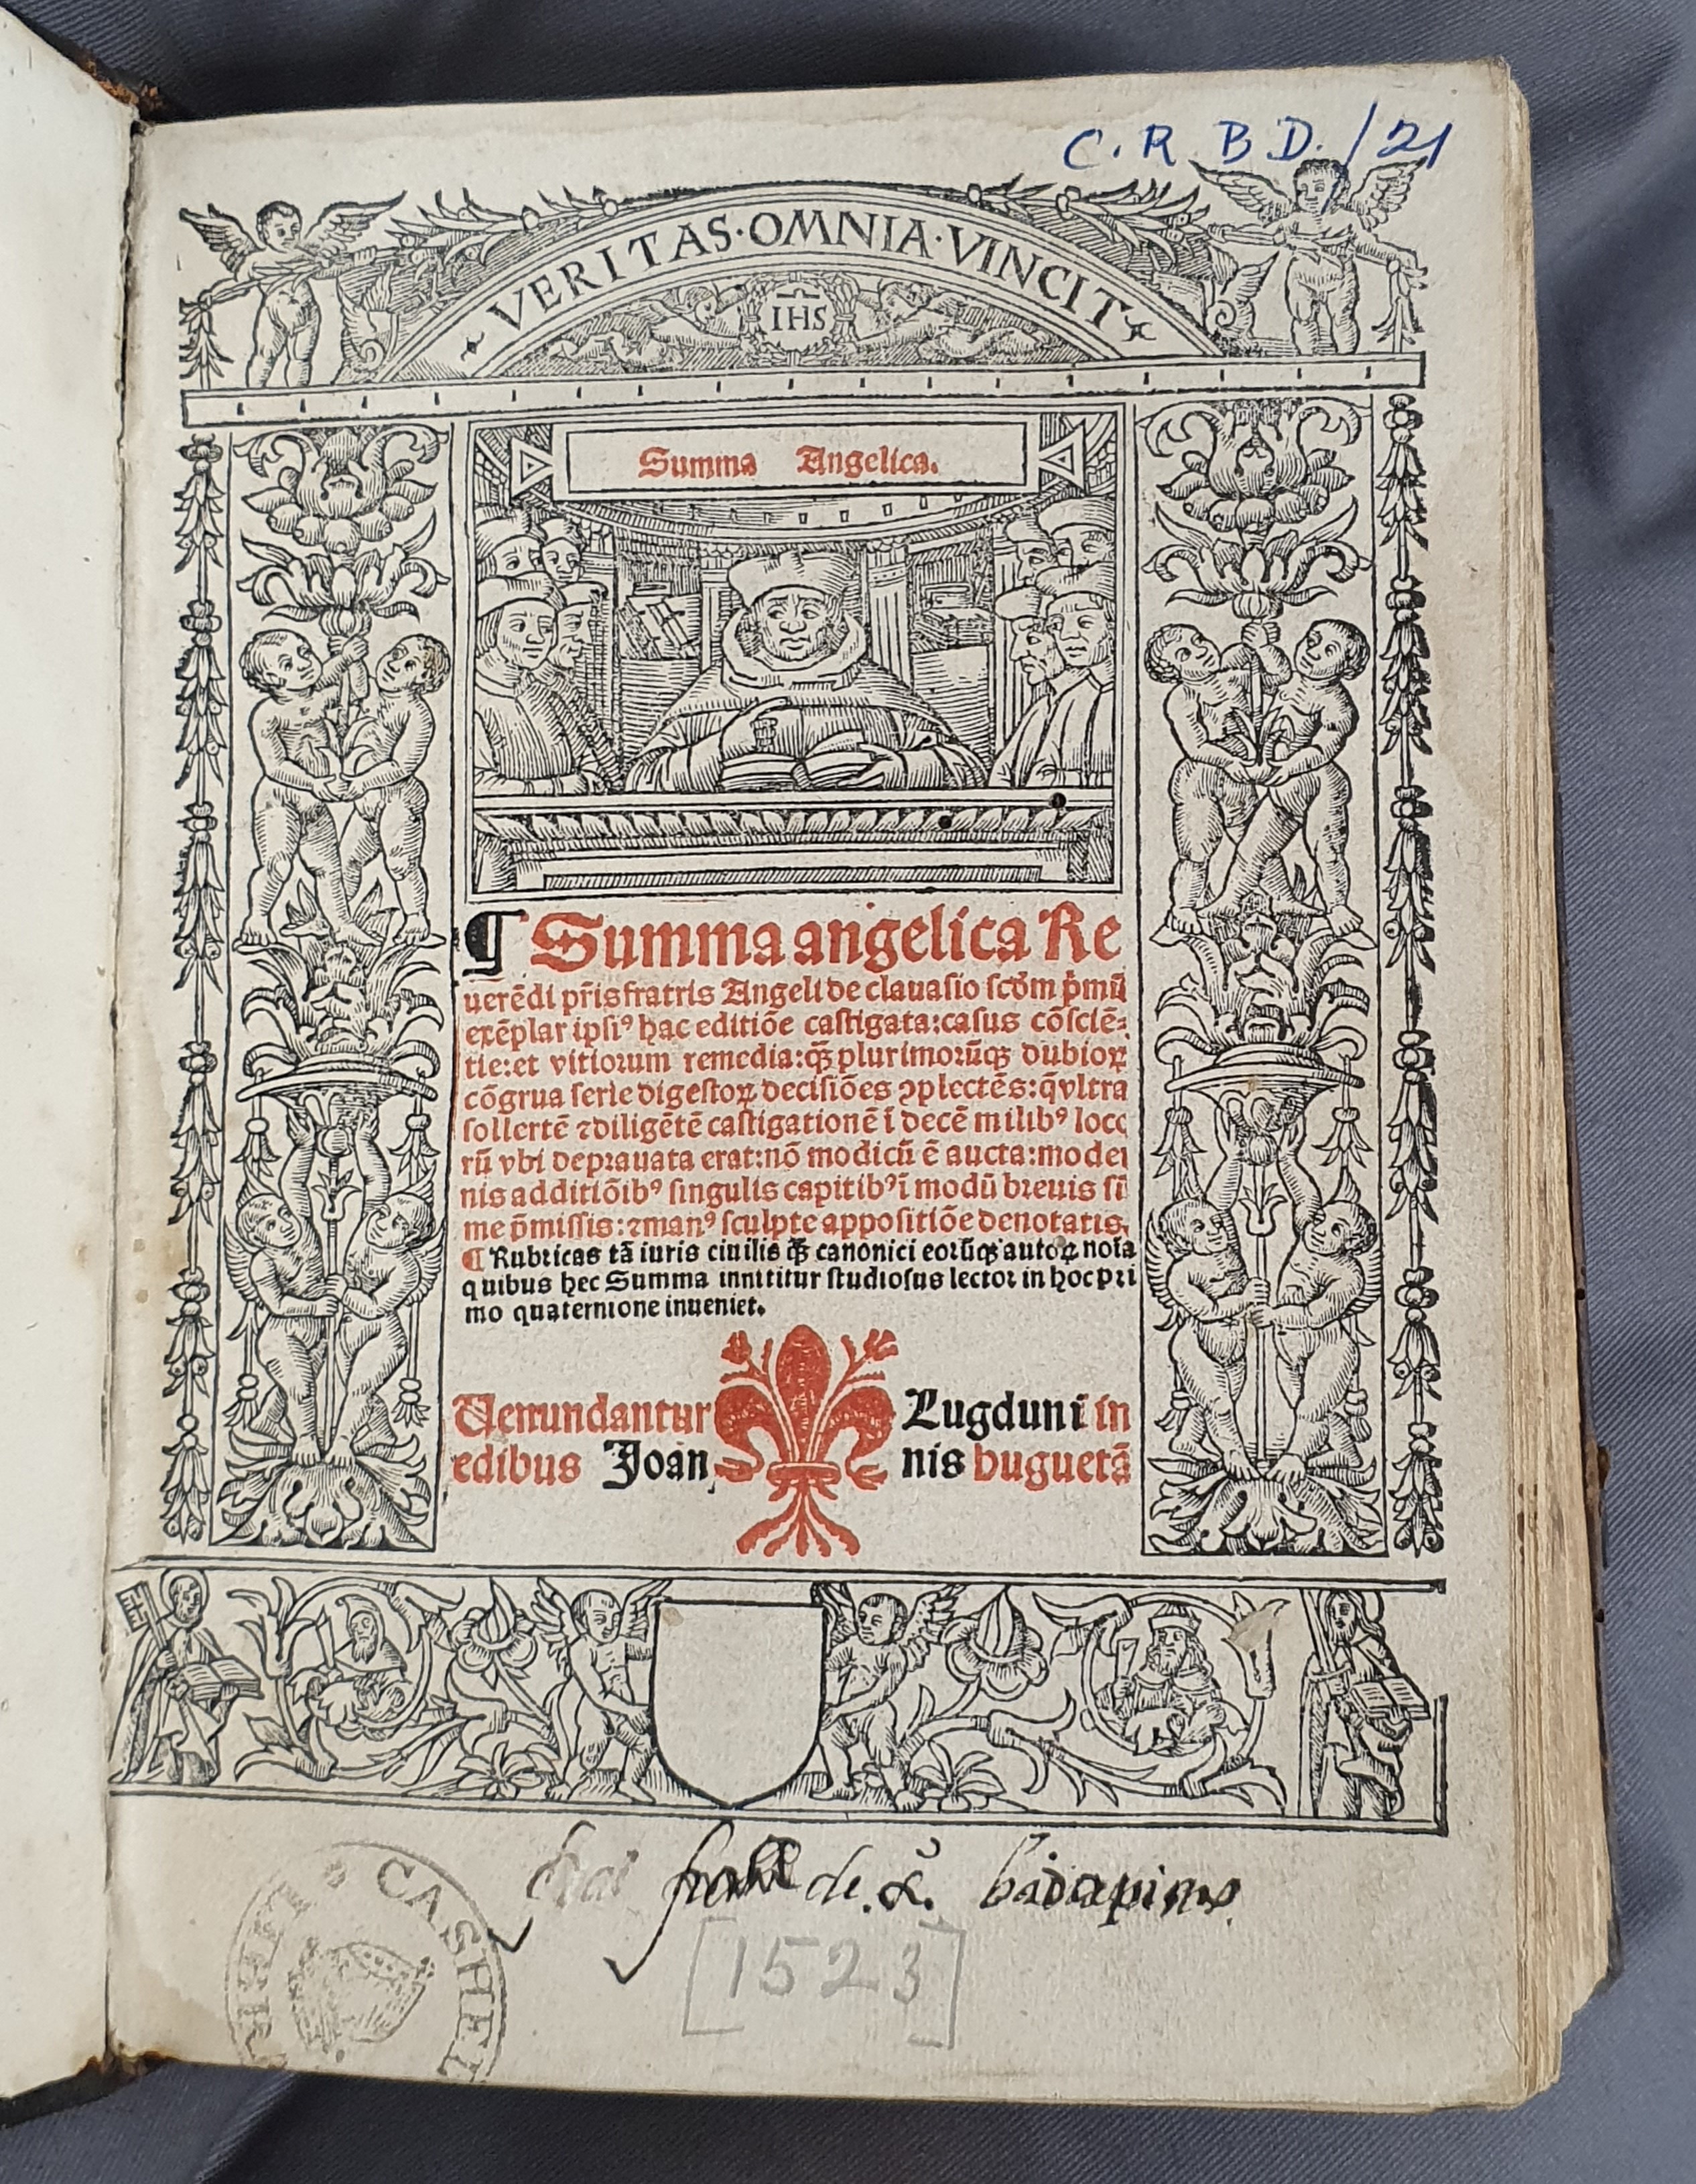 C. R. B D. / 21
VERITAS·OMNIA·VINCIT
IHS
Summa Angelica.
¶ Summa angelica Re
uerēdi pr̄is fratris Angeli de clauasio scd̄m p̄mū
exēplar ipsiꝰ hac editiōe castigata:casus cōsciē⸗
tie:et vitiorum remedia:q̄ꝫ plurimorūqꝫ dubioꝝ
cōgrua serie digestoꝝ decisiōes ꝯplectēs:q̄vltra
sollertē ⁊diligētē castigationē ī decē milibꝰ loco
rū vbi deprauata erat:nō modicū ē aucta:moder
nis additiōibꝰ singulis capitibꝰī modū breuis sū
me p̄missis:⁊manꝰ sculpte appositiōe denotatis.
¶ Rubricas tā iuris ciuilis q̄ꝫ canonici eorūqꝫ autoꝝ noīa
quibus hec Summa innititur studiosus lector in hoc pri
mo quaternione inueniet.
Venundantur Lugduni in
edibus Joan nis huguetā
de .S.
[1523]
CASHEL